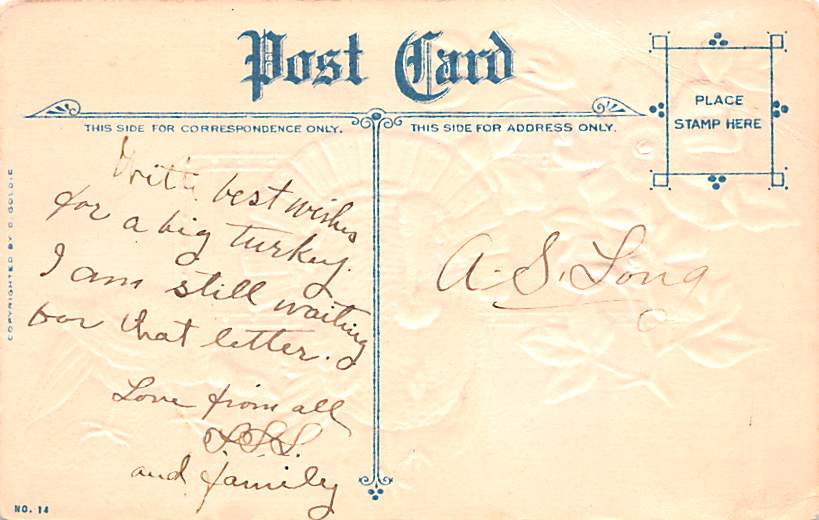 Post Card
THIS SIDE FOR CORRESPONDENCE ONLY.
THIS SIDE FOR ADDRESS ONLY.
PLACE
STAMP HERE
With best wishes
for a big turkey.
I am still waiting
for that letter.
Love from all
L.S.L.
and family
A. S. Long
COPYRIGHTED BY
NO. 14